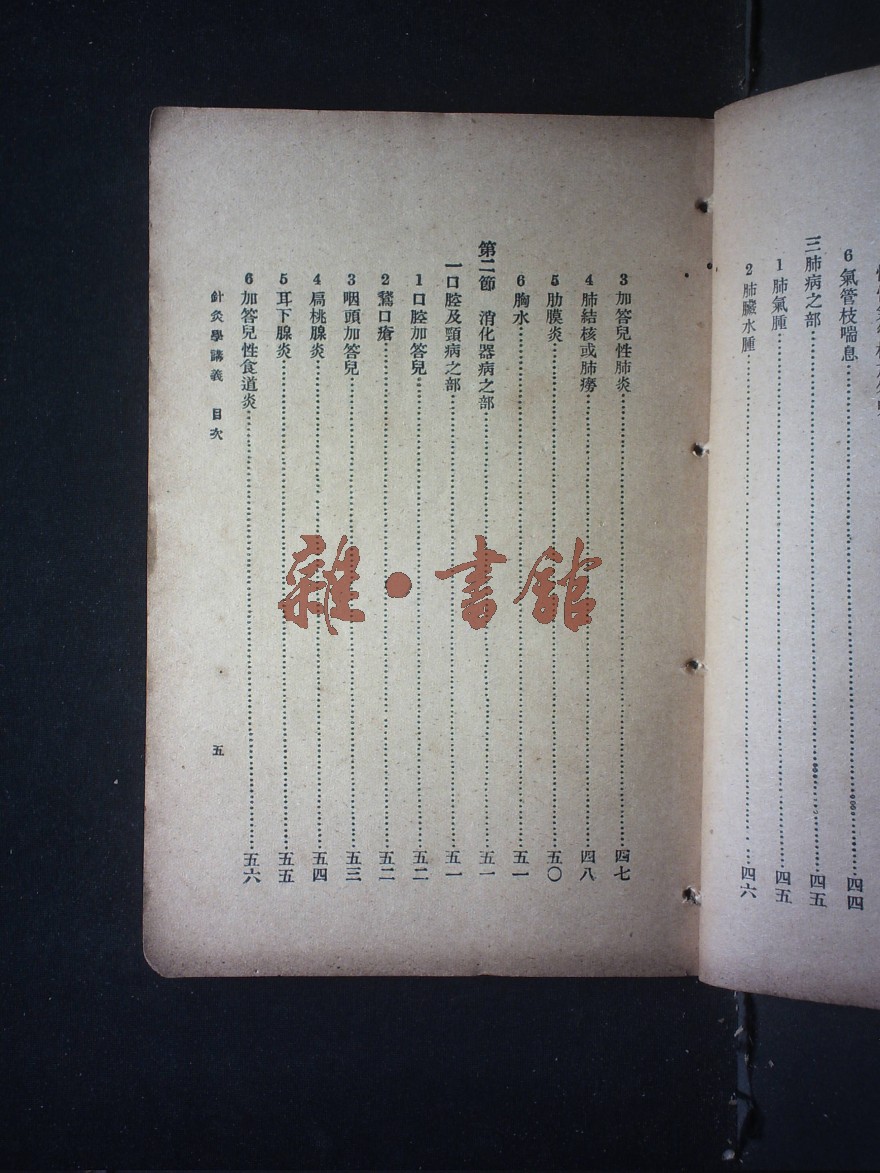 6 氣管枝喘息……四四
三 肺病之部……四五
1 肺氣腫……四五
2 肺臟水腫……四六
3 加答兒性肺炎……四七
4 肺結核或肺癆……四八
5 肋膜炎……五〇
6 胸水……五一
第二節 消化器病之部……五一
一 口腔及頸病之部……五一
1 口腔加答兒……五二
2 鵞口瘡……五二
3 咽頭加答兒……五三
4 扁桃腺炎……五四
5 耳下腺炎……五五
6 加答兒性食道炎……五六
針灸學講義 目次 五
雜·書館